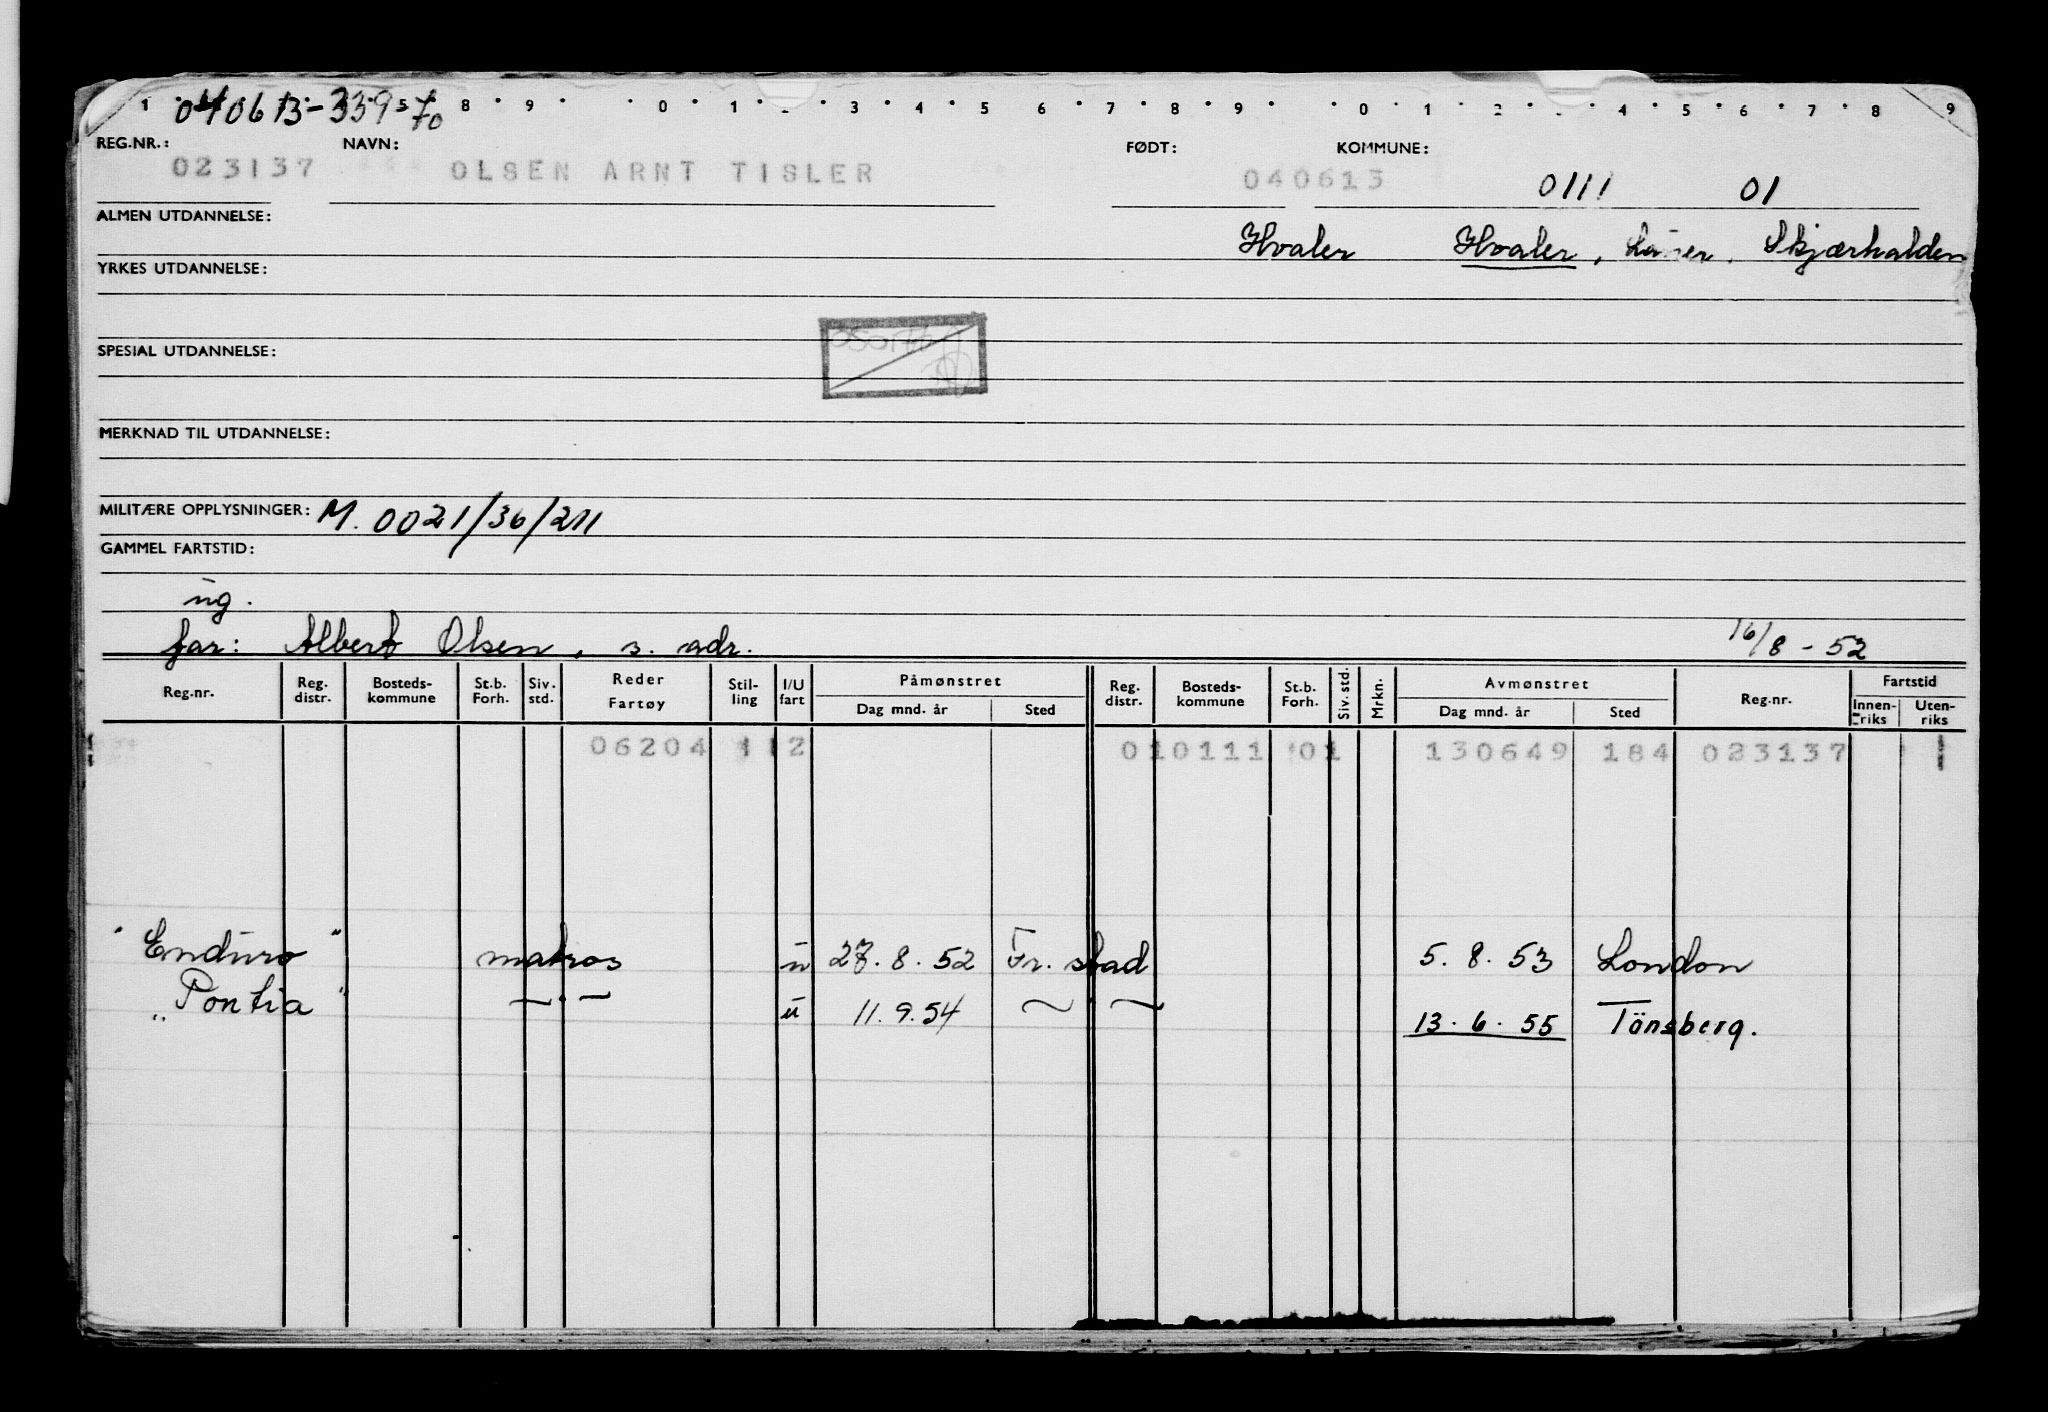 1 8 9 0 1 3 4 5 6 7 8 9 0 1 2 4 5 6 7 8 9
040613-33957
REG.NR.: NAVN: FØDT: KOMMUNE:
023137 OLSEN ARNT TISLER 040613 0111 01
ALMEN UTDANNELSE: Hvaler Hvaler, Skjærhalden
YRKES UTDANNELSE:
SPESIAL UTDANNELSE:
MERKNAD TIL UTDANNELSE:
MILITÆRE OPPLYSNINGER: M. 0021/36/211
GAMMEL FARTSTID:
ug.
far: Albert Olsen, s. adr. 16/8 - 52
Reg.nr. Reg. distr. Bosteds-kommune St.b. Forh. Siv. std. Reder Fartøy Stil-ling I/U fart Påmønstret Dag mnd. år Sted Reg. distr. Bosteds-kommune St.b. Forh. Siv. std. Mrkn. Avmønstret Dag mnd. år Sted Reg.nr. Fartstid Innen-riks Uten-riks
06204 112 010111 01 130649 184 023137 1
"Enduro" matros u 27. 8. 52 Fr. stad 5. 8. 53 London
"Pontia" — . — u 11. 9. 54 — . — 13. 6. 55 Tönsberg.